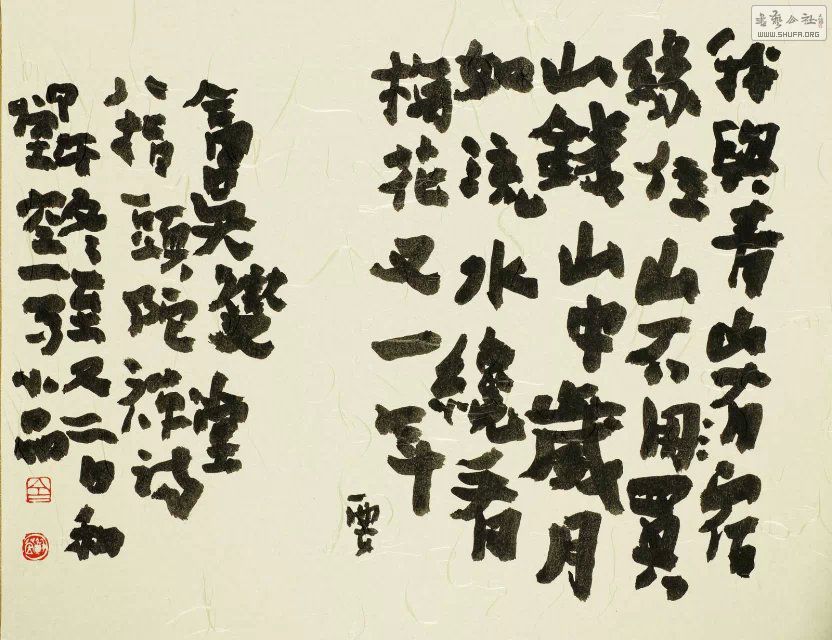 我與青山有宿
緣住山不用買
山錢山中歲月
如流水繞看
梅花又一年
要
八指頭陀禪詩
甲午冬至又二日和
小品
書藝公社
WWW.SHUFA.ORG